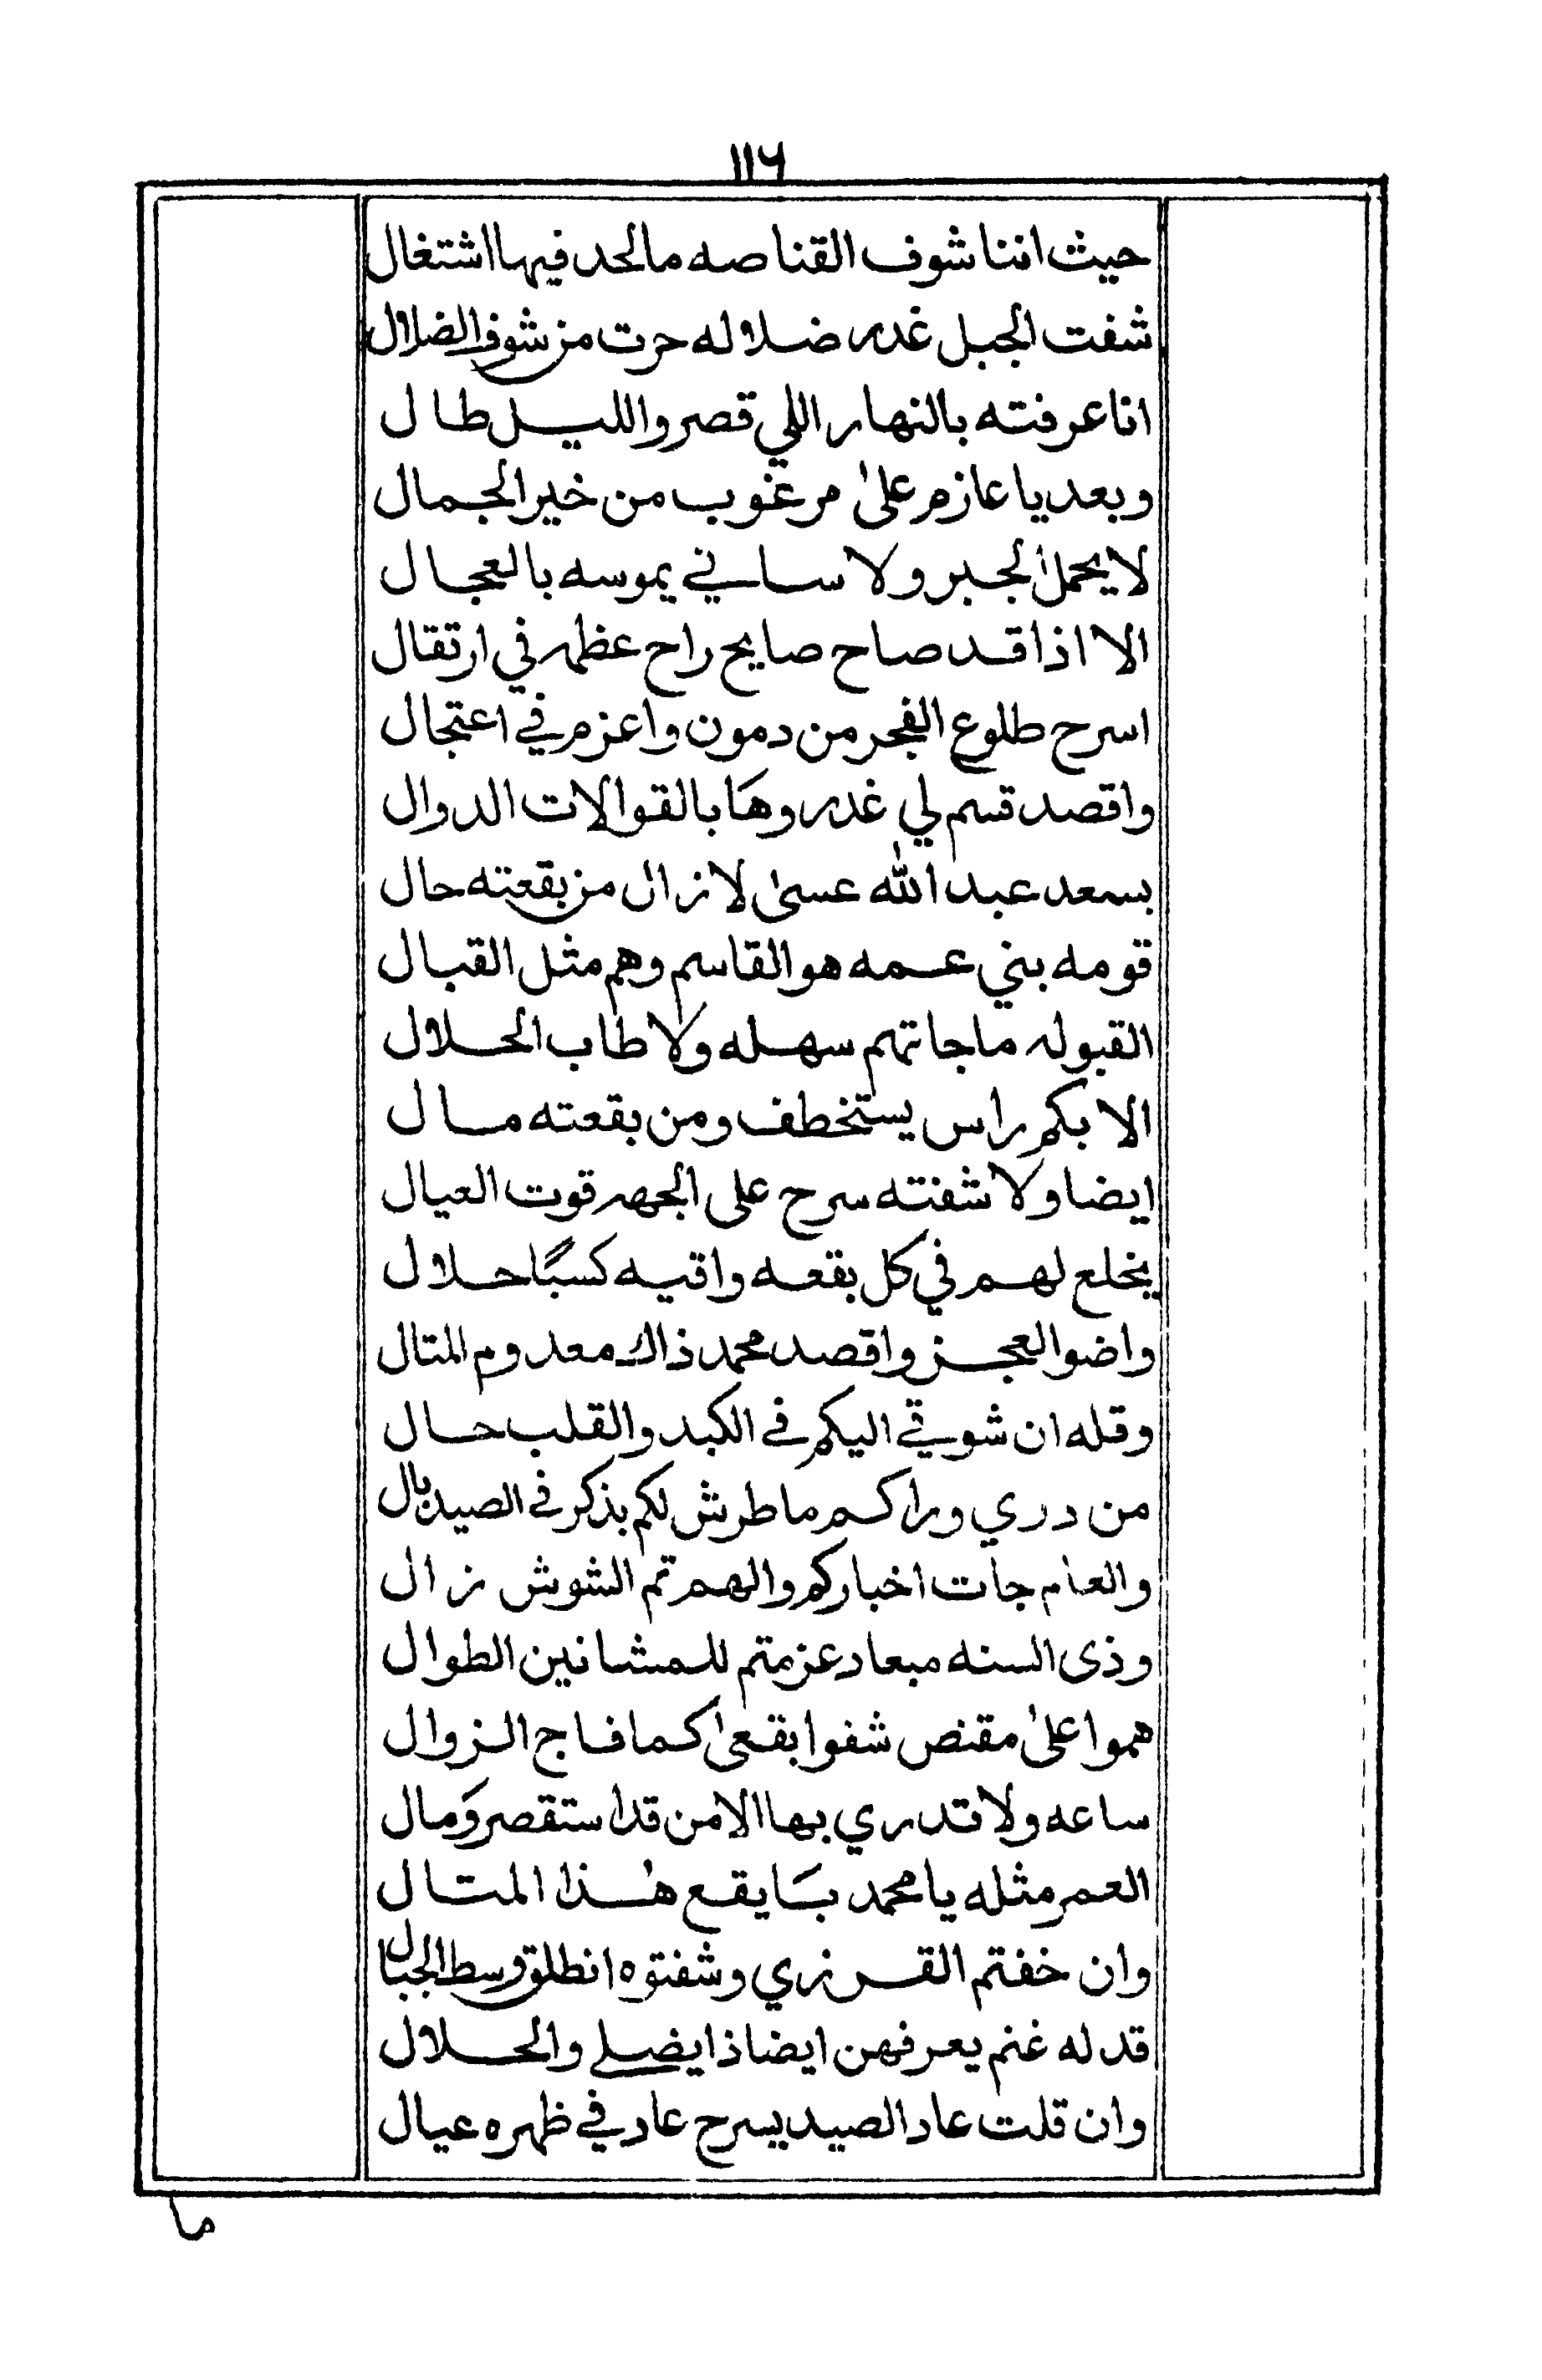 ١١٦
حيث اننا شوف القناصه مالحد فيها اشتغال
شفت الجبل غدر ضلاله حرت من شوف الضلال
انا عرفته بالنهار اللي قصر والليل طال
وبعد يا عازم على مرغوب من خير الجمال
لا يحمل الجبر ولا ساني يموسه بالعجال
الا اذا قد صاح صايح راح عظمه في ارتقال
اسرح طلوع الفجر من دمون واعزم في اعتجال
واقصد قسم لي غدروها بالقوالات الدوال
بسعد عبد الله عسى لا زال من بقعته حال
قومه بني عمه هو القاسم وهم مثل القبال
القبوله ما جاتهم سهله ولا طاب الحلال
الا بكم راس يستخطف ومن بقعته مال
ايضا ولا شفته سرح على الجهه قوت العيال
يخلع لهم في كل بقعه واقيه كسبًا حلال
واضوا العجز واقصد محمد ذاك معدوم المتال
وقله ان شوقي اليكم في الكبد والقلب حال
من دري وراكم ما طرش لكم بذكر في الصيد بال
والعام جات اخباركم والهم تم الشوش زال
وذى السنه مبعاد عزمتم للمشانين الطوال
هموا على مقنص شفوا بقعى كما فاج الزوال
ساعه ولا تدري بها الا من قد استقصر وَمال
العمر مثله يا محمد بَا يقع هٰذا المتال
وان خفتم القرزي وشفتوه انطلق وسط الجبال
قد له غنم يعرفهن ايضا ذا يضلي والحلال
وان قلت عاد الصيد يسرح عاد في ظهره عيال
ما